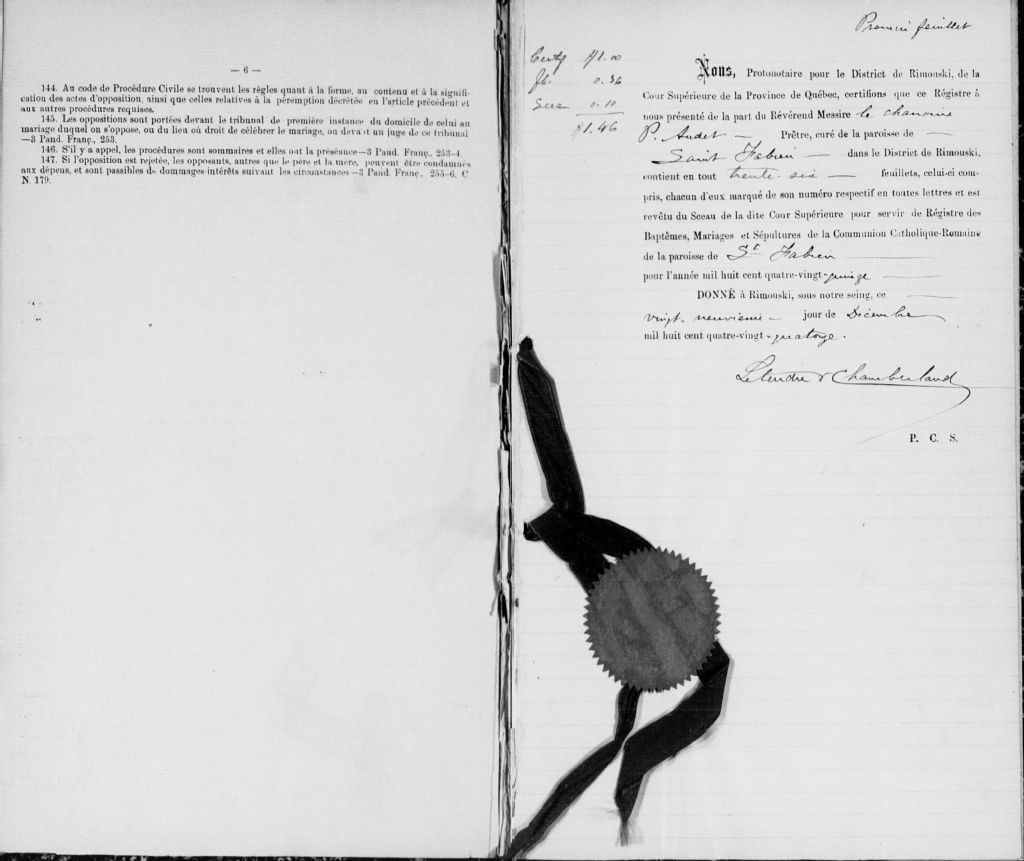 — 6 —
144. Au code de Procédure Civile se trouvent les règles quant à la forme, au contenu et à la signifi-
cation des actes d'opposition, ainsi que celles relatives à la péremption décrétée en l'article précédent et
aux autres procédures requises.
145. Les oppositions sont portées devant le tribunal de première instance du domicile de celui au
mariage duquel on s'oppose, ou du lieu où droit de célébrer le mariage, ou devant un juge de ce tribunal
—3 Pand. Franç., 253.
146. S'il y a appel, les procédures sont sommaires et elles ont la préséance—3 Pand. Franç., 253-4.
147. Si l'opposition est rejetée, les opposants, autres que le père et la mère, peuvent être condamnés
aux dépens, et sont passibles de dommages-intérêts suivant les circonstances—3 Pand. Franç., 255-6. C
N. 179.
Premier feuillet
$1.00
0.36
0.10
$1.46
Nous, Protonotaire pour le District de Rimouski, de la
Cour Supérieure de la Province de Québec, certifions que ce Régistre à
nous présenté de la part du Révérend Messire le chanoine
P. Audet — Prêtre, curé de la paroisse de
Saint Fabien — dans le District de Rimouski,
contient en tout trente-six — feuillets, celui-ci com-
pris, chacun d'eux marqué de son numéro respectif en toutes lettres et est
revêtu du Sceau de la dite Cour Supérieure pour servir de Régistre des
Baptêmes, Mariages et Sépultures de la Communion Catholique-Romaine
de la paroisse de St Fabien —
pour l'année mil huit cent quatre-vingt-quinze —
DONNÉ à Rimouski, sous notre seing, ce —
vingt-neuvième — jour de Décembre
mil huit cent quatre-vingt-quatorze.
Letendre & Chamberland
P. C. S.